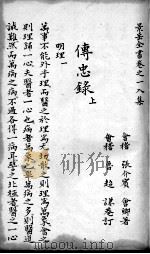 景岳全書卷之一入集
會稽 張介賓 會卿著
會稽 魯超 謙菴訂
傳忠錄上
明理一
萬事不能外乎理而醫之於理為尤切散之則理為萬象會之
則理歸一心夫醫者一心也病者萬象也舉萬病之多則醫道
誠難然而萬病之病不過各得一病耳譬之北極者醫之一心